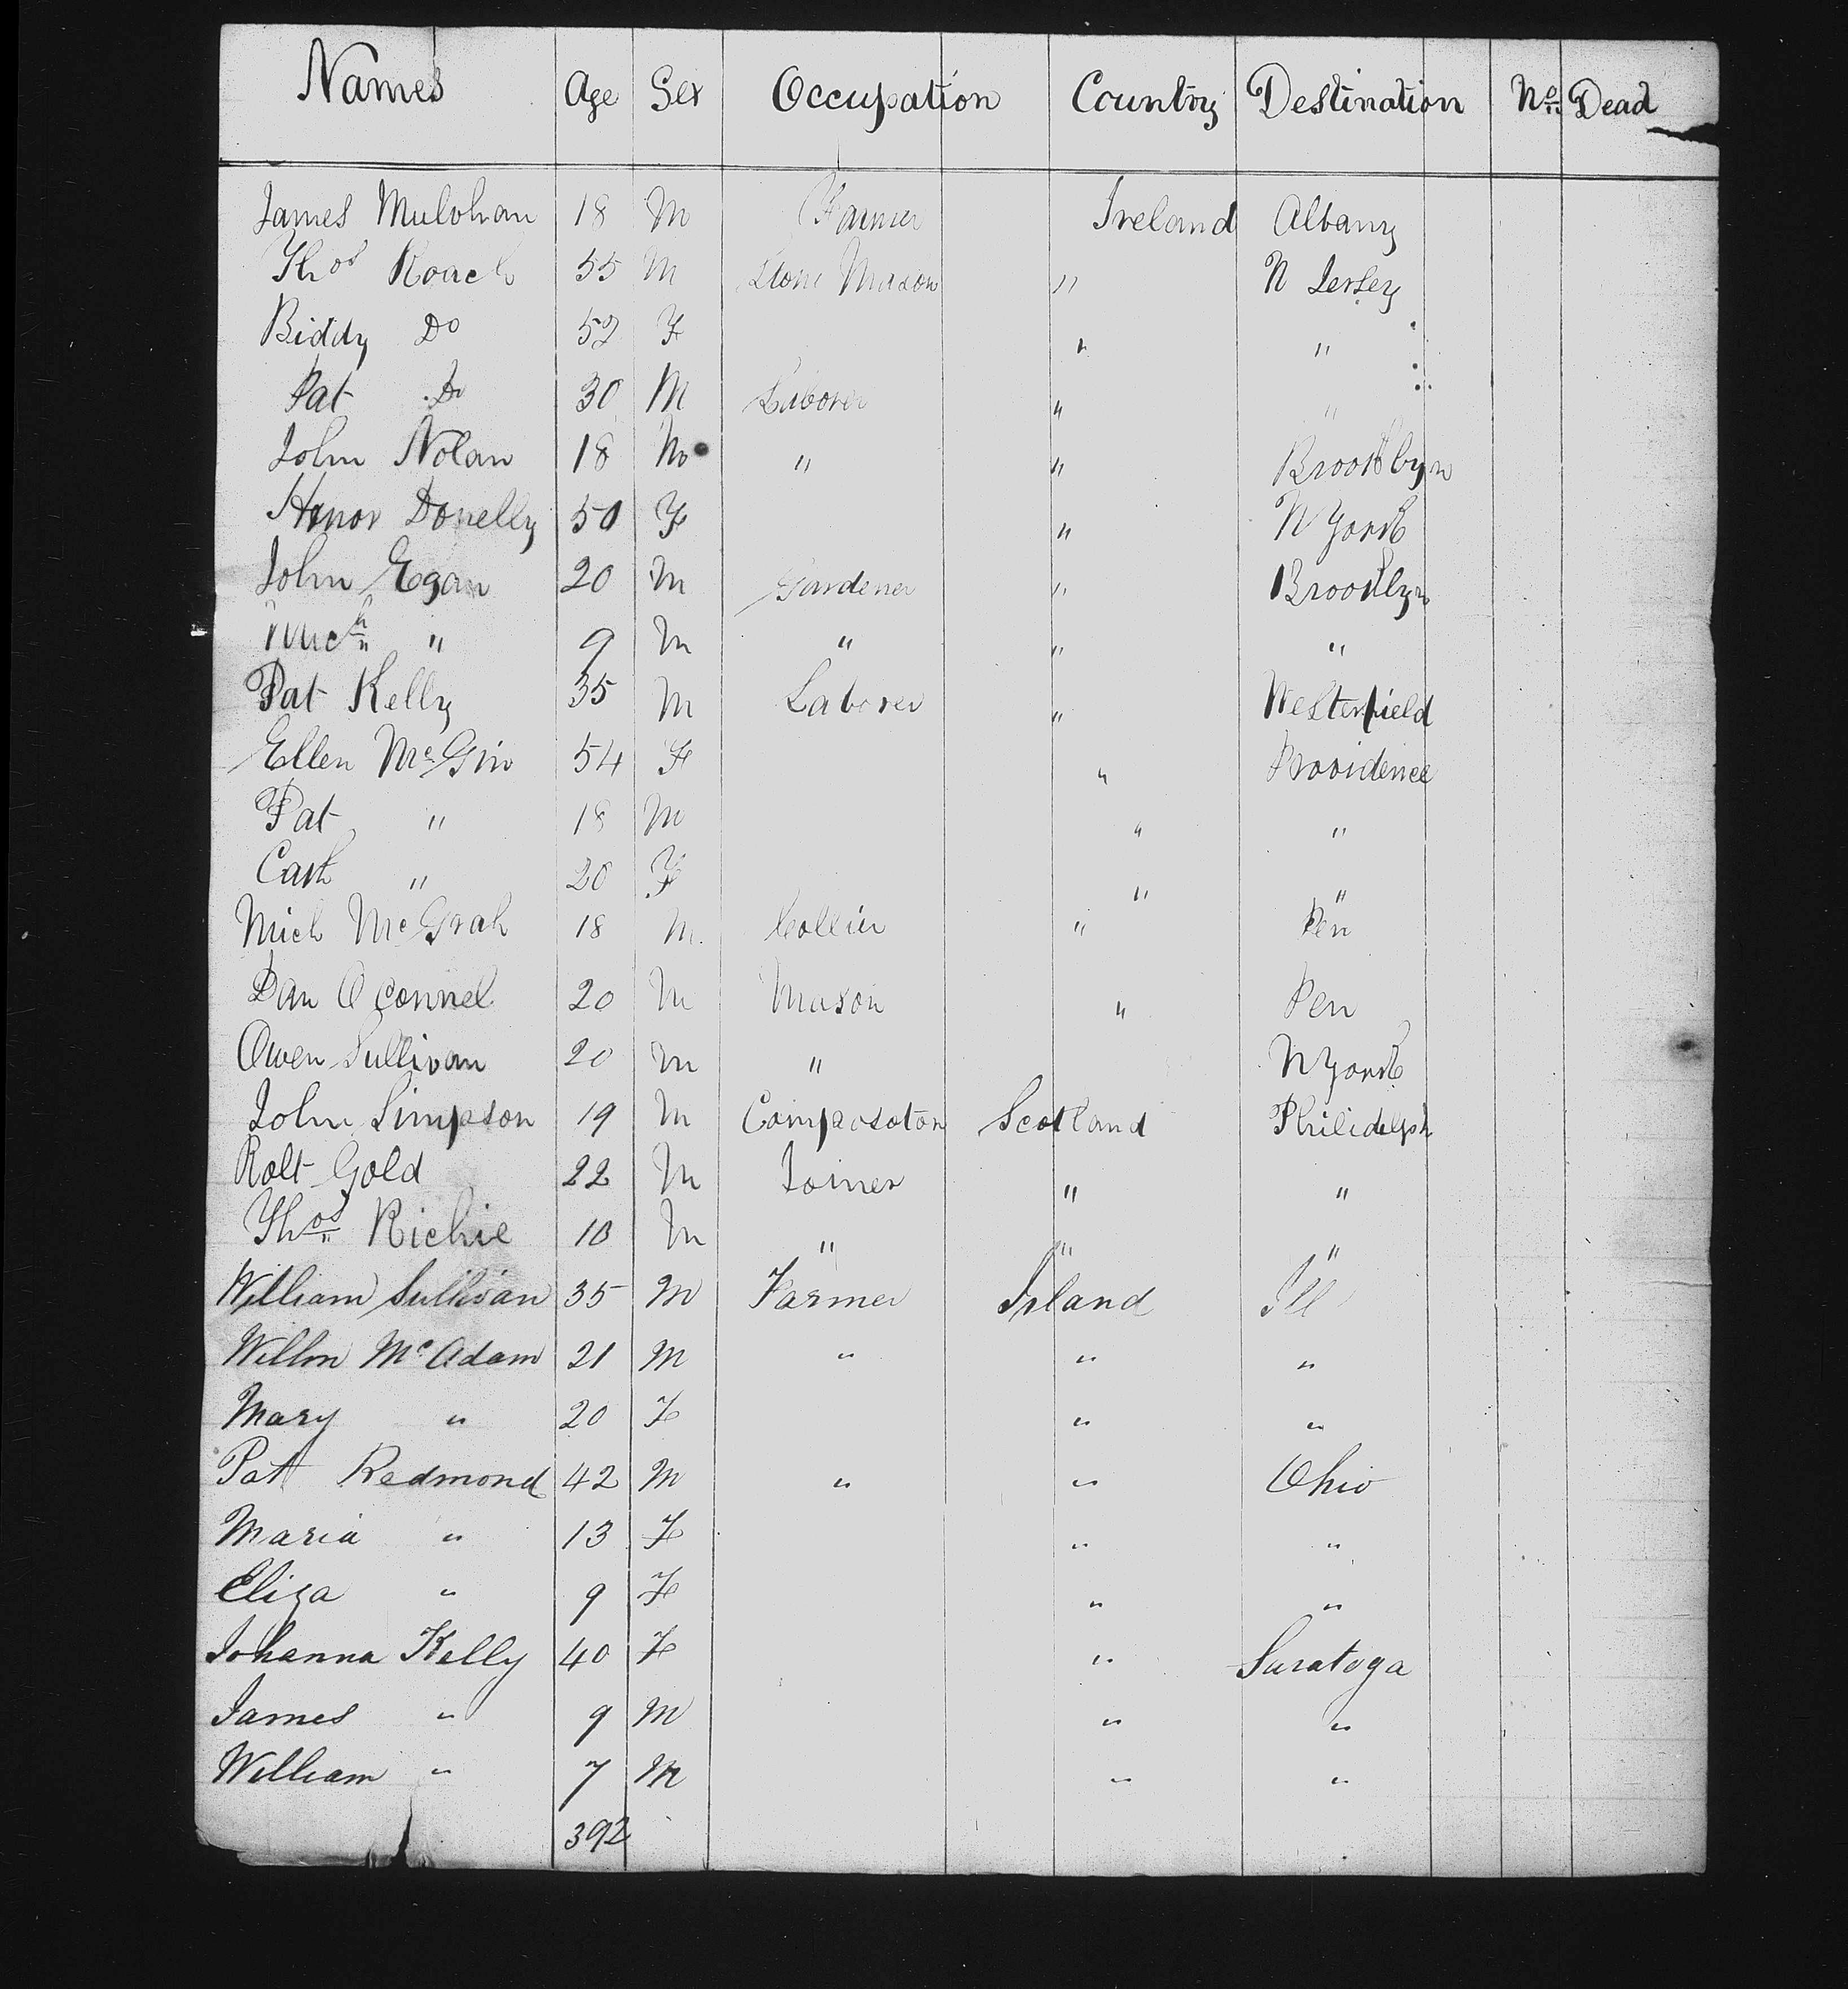 Names Age Sex Occupation Country Destination No. Dead
James Mulvhan 18 M Farmer Ireland Albany
Thos Roach 55 M Stone Mason " N Jersey
Biddy Do 52 F " "
Pat Do 30 M Laborer " "
John Nolan 18 M " " Brooklyn
Honor Donelly 50 F " N York
John Egan 20 M Gardener " Brooklyn
Mich " 9 M " " "
Pat Kelly 35 M Laborer " Westerfield
Ellen McGin 54 F " Providence
Pat " 18 M " "
Cath " 20 F " "
Mich McGrah 18 M. Collier " Pen
Dan O Connel 20 M Mason " Pen
Owen Sullivan 20 M " N York
John Simpson 19 M Composotor Scotland Philidelph
Robt Gold 22 M Joiner " "
Thos Richie 18 M " " "
William Sullivan 35 M Farmer Irland Ill
Willm McAdam 21 M " " "
Mary " 20 F " "
Pat Redmond 42 M " " Ohio
Maria " 13 F " "
Eliza " 9 F " "
Johanna Kelly 40 F " Saratoga
James " 9 M " "
William " 7 M " "
392